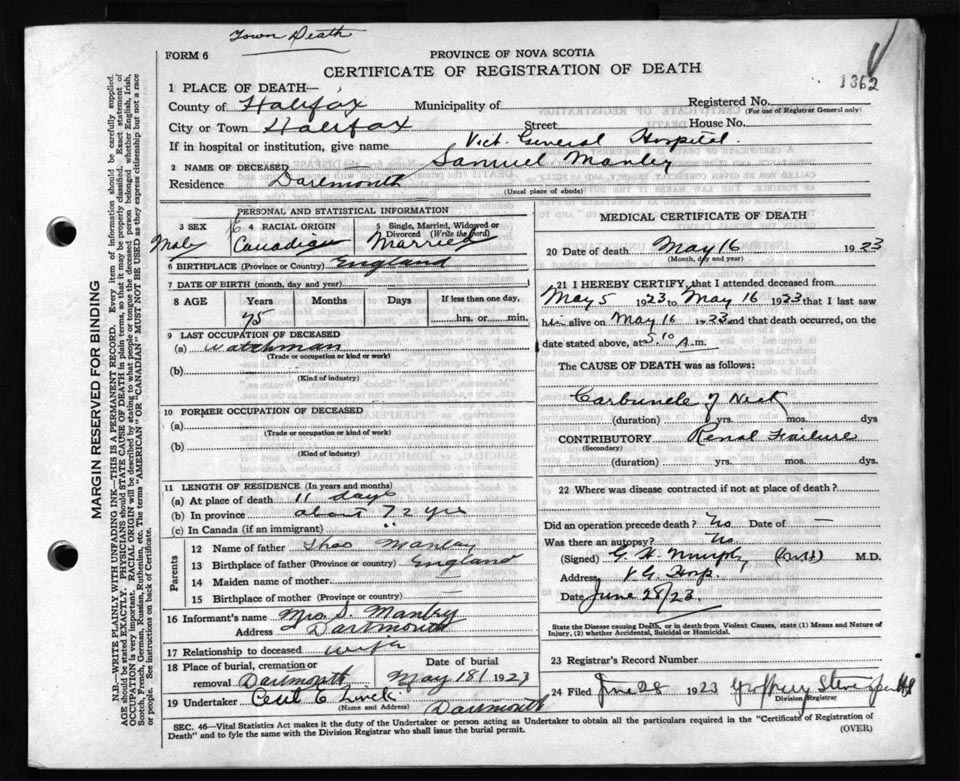 Town Death
FORM 6
PROVINCE OF NOVA SCOTIA
CERTIFICATE OF REGISTRATION OF DEATH
1362
1 PLACE OF DEATH—
County of Halifax Municipality of Registered No.
(For use of Registrar General only)
City or Town Halifax Street House No.
If in hospital or institution, give name Vict. General Hospital.
2 NAME OF DECEASED Samuel Manley
Residence Dartmouth
(Usual place of abode)
PERSONAL AND STATISTICAL INFORMATION
3 SEX Male
4 RACIAL ORIGIN Canadian
5 Single, Married, Widowed or Divorced (Write the word) Married
6 BIRTHPLACE (Province or Country) England
7 DATE OF BIRTH (month, day and year)
8 AGE Years Months Days If less than one day,
75 hrs. or min.
9 LAST OCCUPATION OF DECEASED
(a) Watchman
(Trade or occupation or kind or work)
(b)
(Kind of industry)
10 FORMER OCCUPATION OF DECEASED
(a)
(Trade or occupation or kind or work)
(b)
(Kind of industry)
11 LENGTH OF RESIDENCE (In years and months)
(a) At place of death 11 days
(b) In province about 72 yrs
(c) In Canada (if an immigrant) "
Parents
12 Name of father Thos Manley
13 Birthplace of father (Province or country) England
14 Maiden name of mother —
15 Birthplace of mother (Province or country) —
16 Informant's name Mrs S. Manley
Address Dartmouth
17 Relationship to deceased wife
18 Place of burial, cremation or removal Dartmouth
Date of burial May 18 1923
19 Undertaker Cecil E.
(Name and Address) Dartmouth
MEDICAL CERTIFICATE OF DEATH
20 Date of death May 16 1923
(Month, day and year)
21 I HEREBY CERTIFY, that I attended deceased from
May 5 1923 to May 16 1923 that I last saw
him alive on May 16 1923 and that death occurred, on the
date stated above, at 3.10 A.m.
The CAUSE OF DEATH was as follows:
Carbuncle of Neck
(duration) yrs. mos. dys
CONTRIBUTORY Renal Failure
(Secondary)
(duration) yrs. mos. dys.
22 Where was disease contracted if not at place of death?
Did an operation precede death? No Date of —
Was there an autopsy? No
(Signed) G. H. Murphy M.D.
Address V. G. Hosp.
Date June 28/23.
State the Disease causing Death, or in death from Violent Causes, state (1) Means and Nature of
Injury, (2) whether Accidental, Suicidal or Homicidal.
23 Registrar's Record Number
24 Filed June 28 1923
Division Registrar
SEC. 46—Vital Statistics Act makes it the duty of the Undertaker or person acting as Undertaker to obtain all the particulars required in the "Certificate of Registration of
Death" and to fyle the same with the Division Registrar who shall issue the burial permit. (OVER)
MARGIN RESERVED FOR BINDING
N.B.—WRITE PLAINLY WITH UNFADING INK—THIS IS A PERMANENT RECORD. Every item of information should be carefully supplied.
AGE should be stated EXACTLY. PHYSICIANS should STATE CAUSE OF DEATH in plain terms, so that it may be properly classified. Exact statement of
OCCUPATION is very important. RACIAL ORIGIN will be described by stating to what people or tongue the deceased person belonged whether English, Irish,
Scotch, French, German, Russian, Ruthenian, etc. The terms "AMERICAN" OR "CANADIAN" MUST NOT BE USED as they express citizenship but not a race
or people. See instructions on back of Certificate.